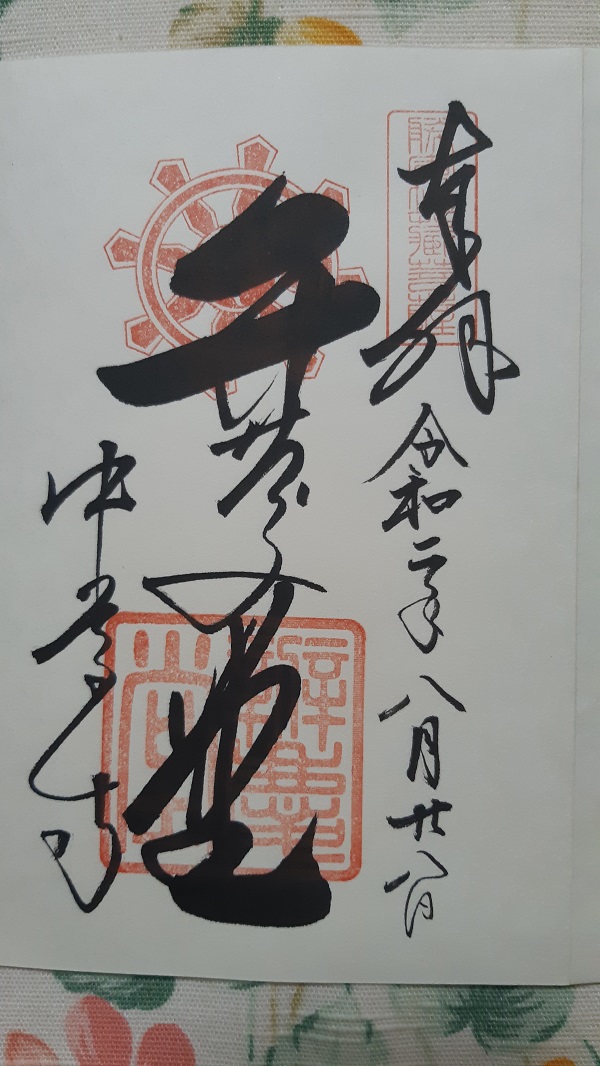 奉拝 令和二年八月廿八日
弁慶堂
中尊寺